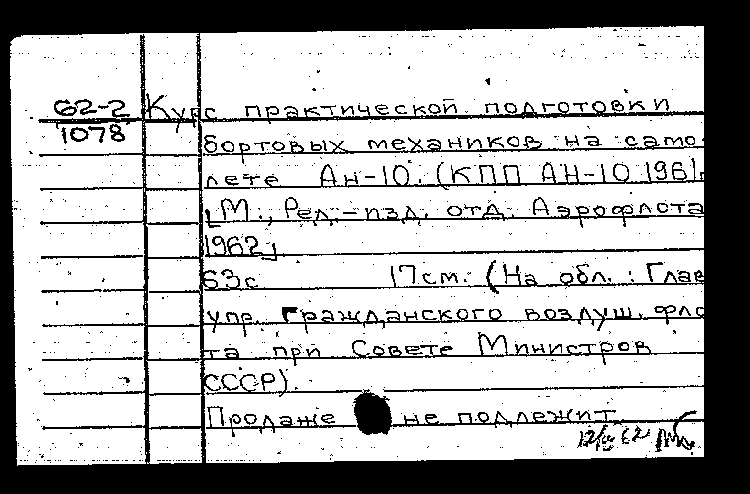 62-2 Курс практической подготовки
1078
бортовых механиков на само-
лете Ан-10. (КПП АН-10 1961.
[М., Ред.-изд. отд. Аэрофлота
1962]
63с 17см. (На обл.: Глав
упр. Гражданского воздуш. фло
та при Совете Министров
СССР).
Продаже не подлежит
62